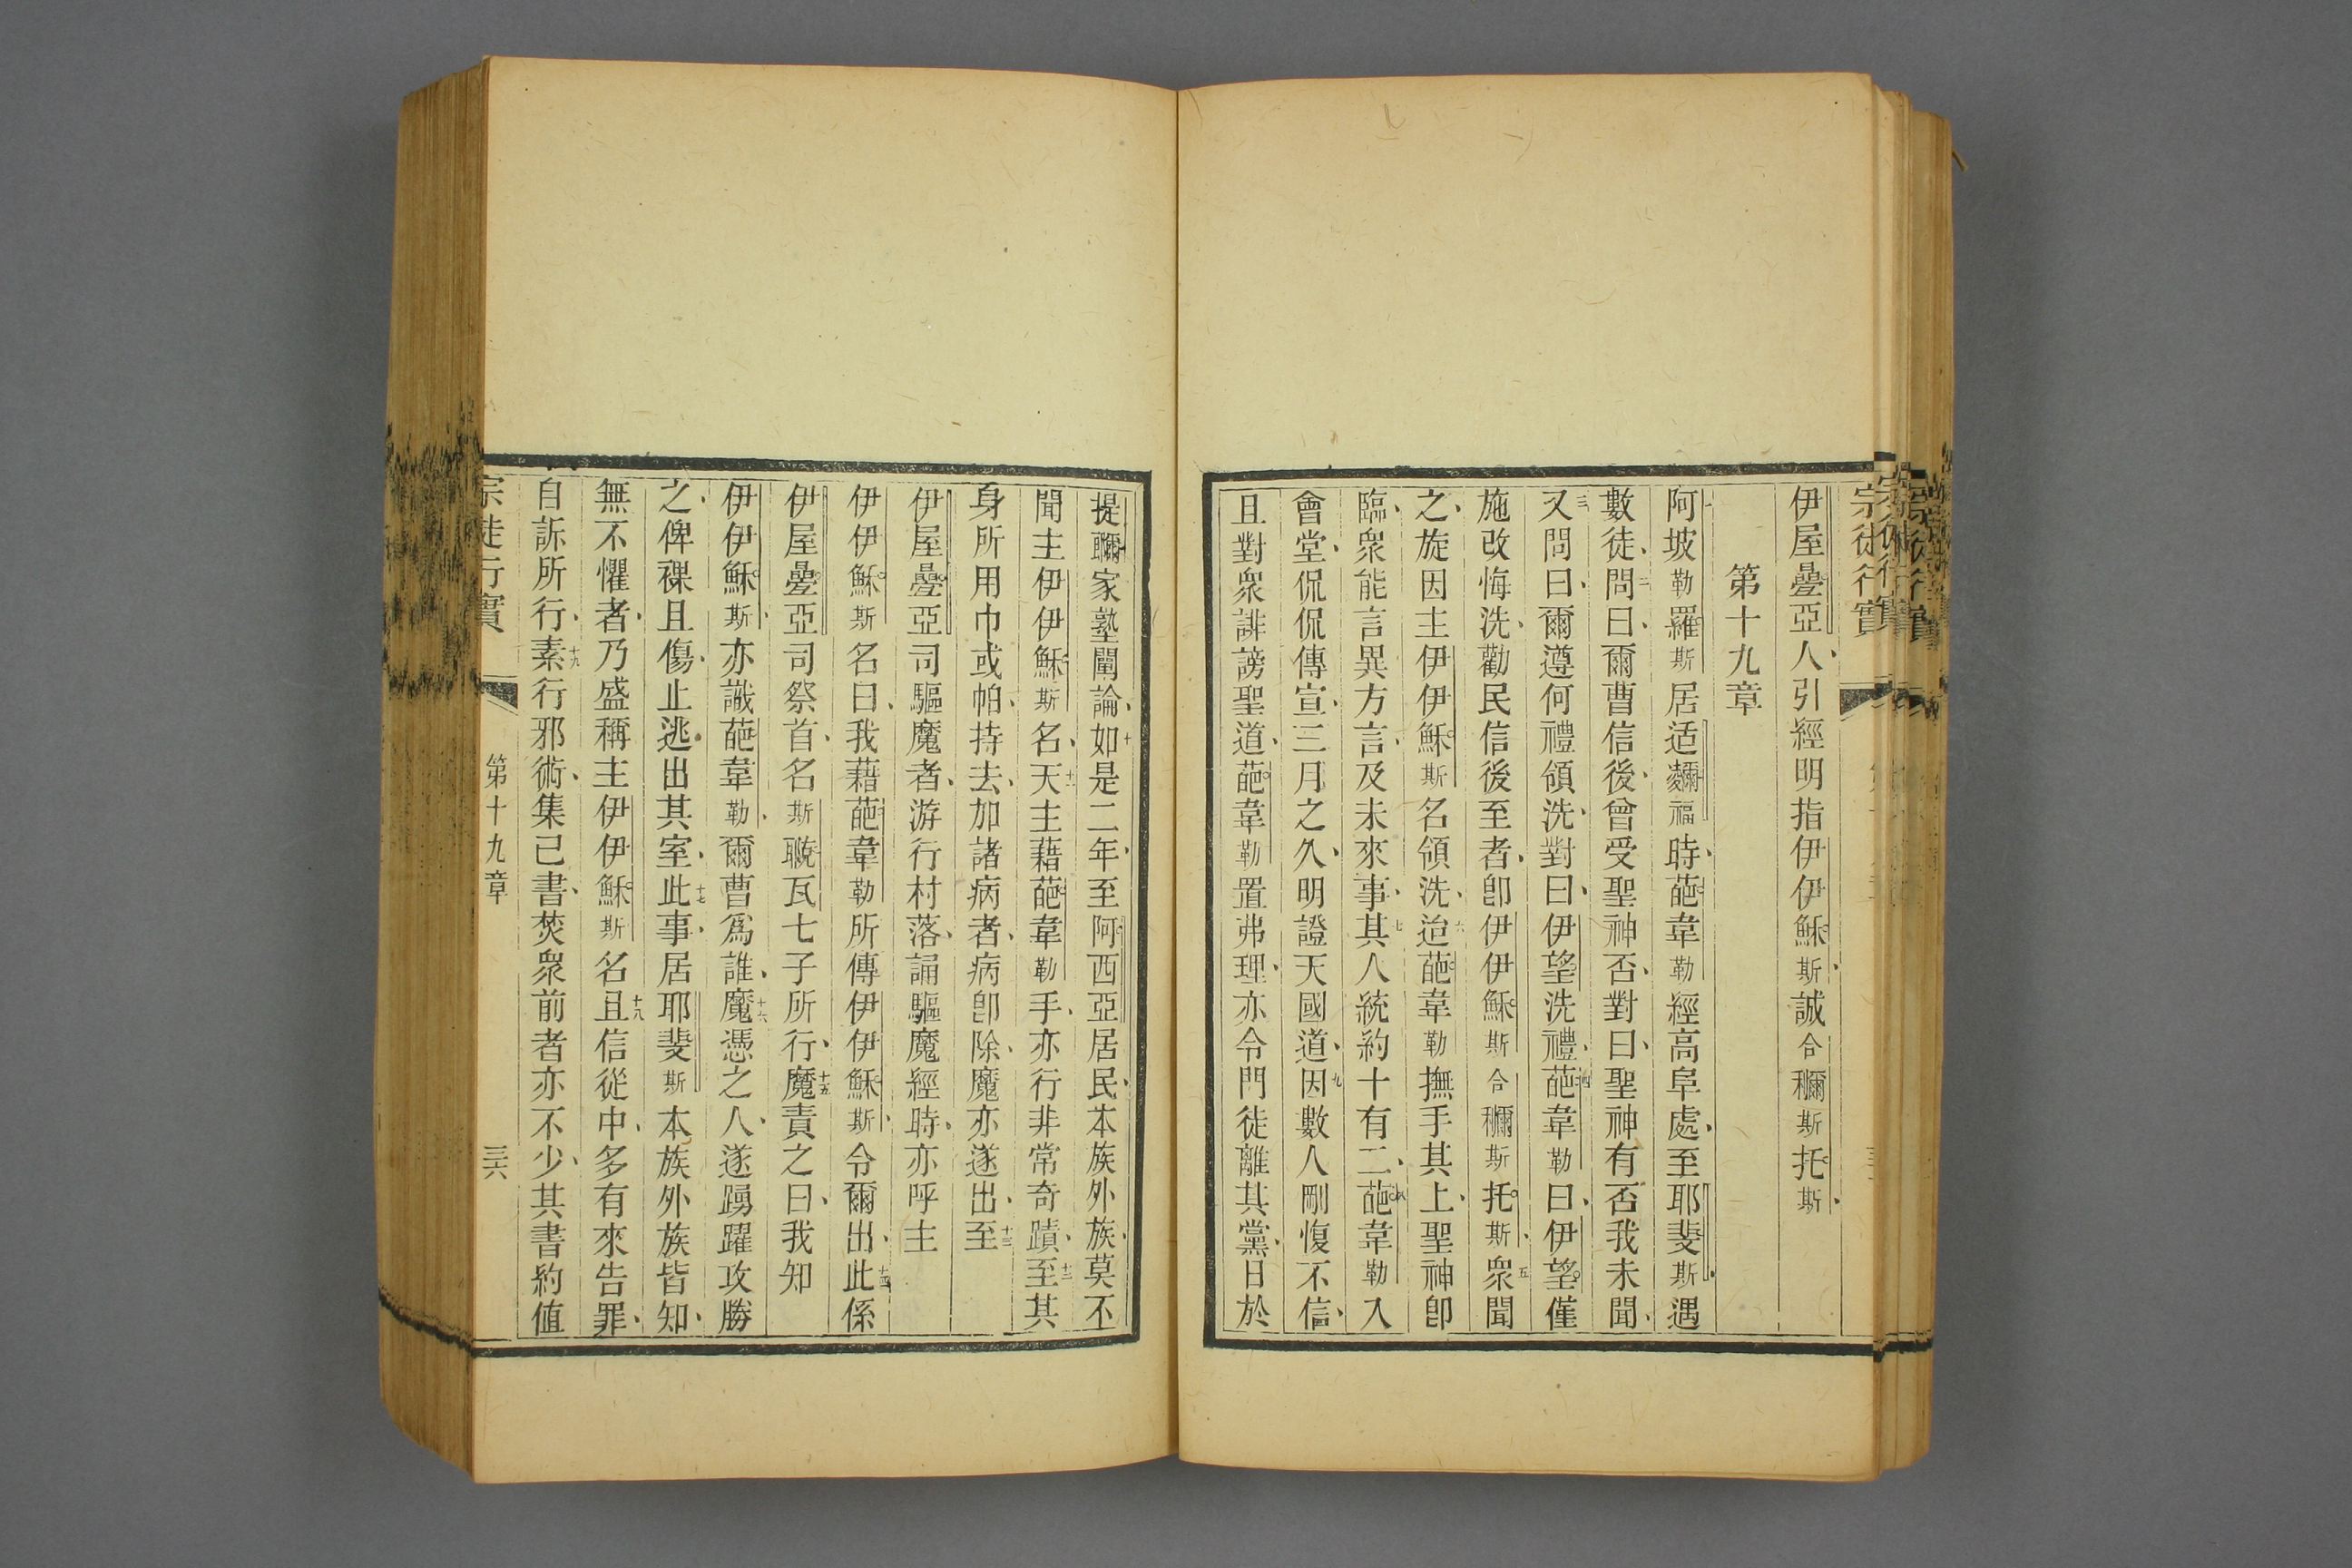 伊屋疊亞人、引經明指伊伊穌斯、誠合穪斯托斯、
第十九章
一阿坡勒羅斯居适𪎮福時、葩韋勒經高阜處、至耶斐斯、遇
數徒、二問曰、爾曹信後、曾受聖神否、對曰、聖神有否我未聞、
三又問曰、爾遵何禮領洗、對曰、伊望洗禮、四葩韋勒曰、伊望僅
施改悔洗、勸民信後至者、卽伊伊穌斯合穪斯托斯、五衆聞
之、旋因主伊伊穌斯名領洗、六迨葩韋勒撫手其上、聖神卽
臨、衆能言異方言、及未來事、七其人統約十有二、八葩韋勒入
會堂、侃侃傳宣、三月之久、明證天國道、九因數人剛愎不信、
且對衆誹謗聖道、葩韋勒置弗理、亦令門徒離其黨、日於
提𦗕家塾闡論、十如是二年、至阿西亞居民、本族外族、莫不
聞主伊伊穌斯名、十一天主藉葩韋勒手、亦行非常奇蹟、十二至其
身所用巾或帕、持去、加諸病者、病卽除、魔亦遂出、十三至
伊屋疊亞司驅魔者、游行村落、誦驅魔經時、亦呼主
伊伊穌斯名曰、我藉葩韋勒所傳伊伊穌斯、令爾出、十四此係
伊屋疊亞司祭首、名斯瓦七子所行、十五魔責之曰、我知
伊伊穌斯、亦識葩韋勒、爾曹爲誰、十六魔憑之人、遂踴躍攻勝
之、俾裸且傷、止逃出其室、十七此事、居耶斐斯本族外族皆知、
無不懼者、乃盛稱主伊伊穌斯名、十八且信從中、多有來告罪、
自訴所行、十九素行邪術、集己書、焚衆前者亦不少、其書約值
宗徒行實 第十九章 三六